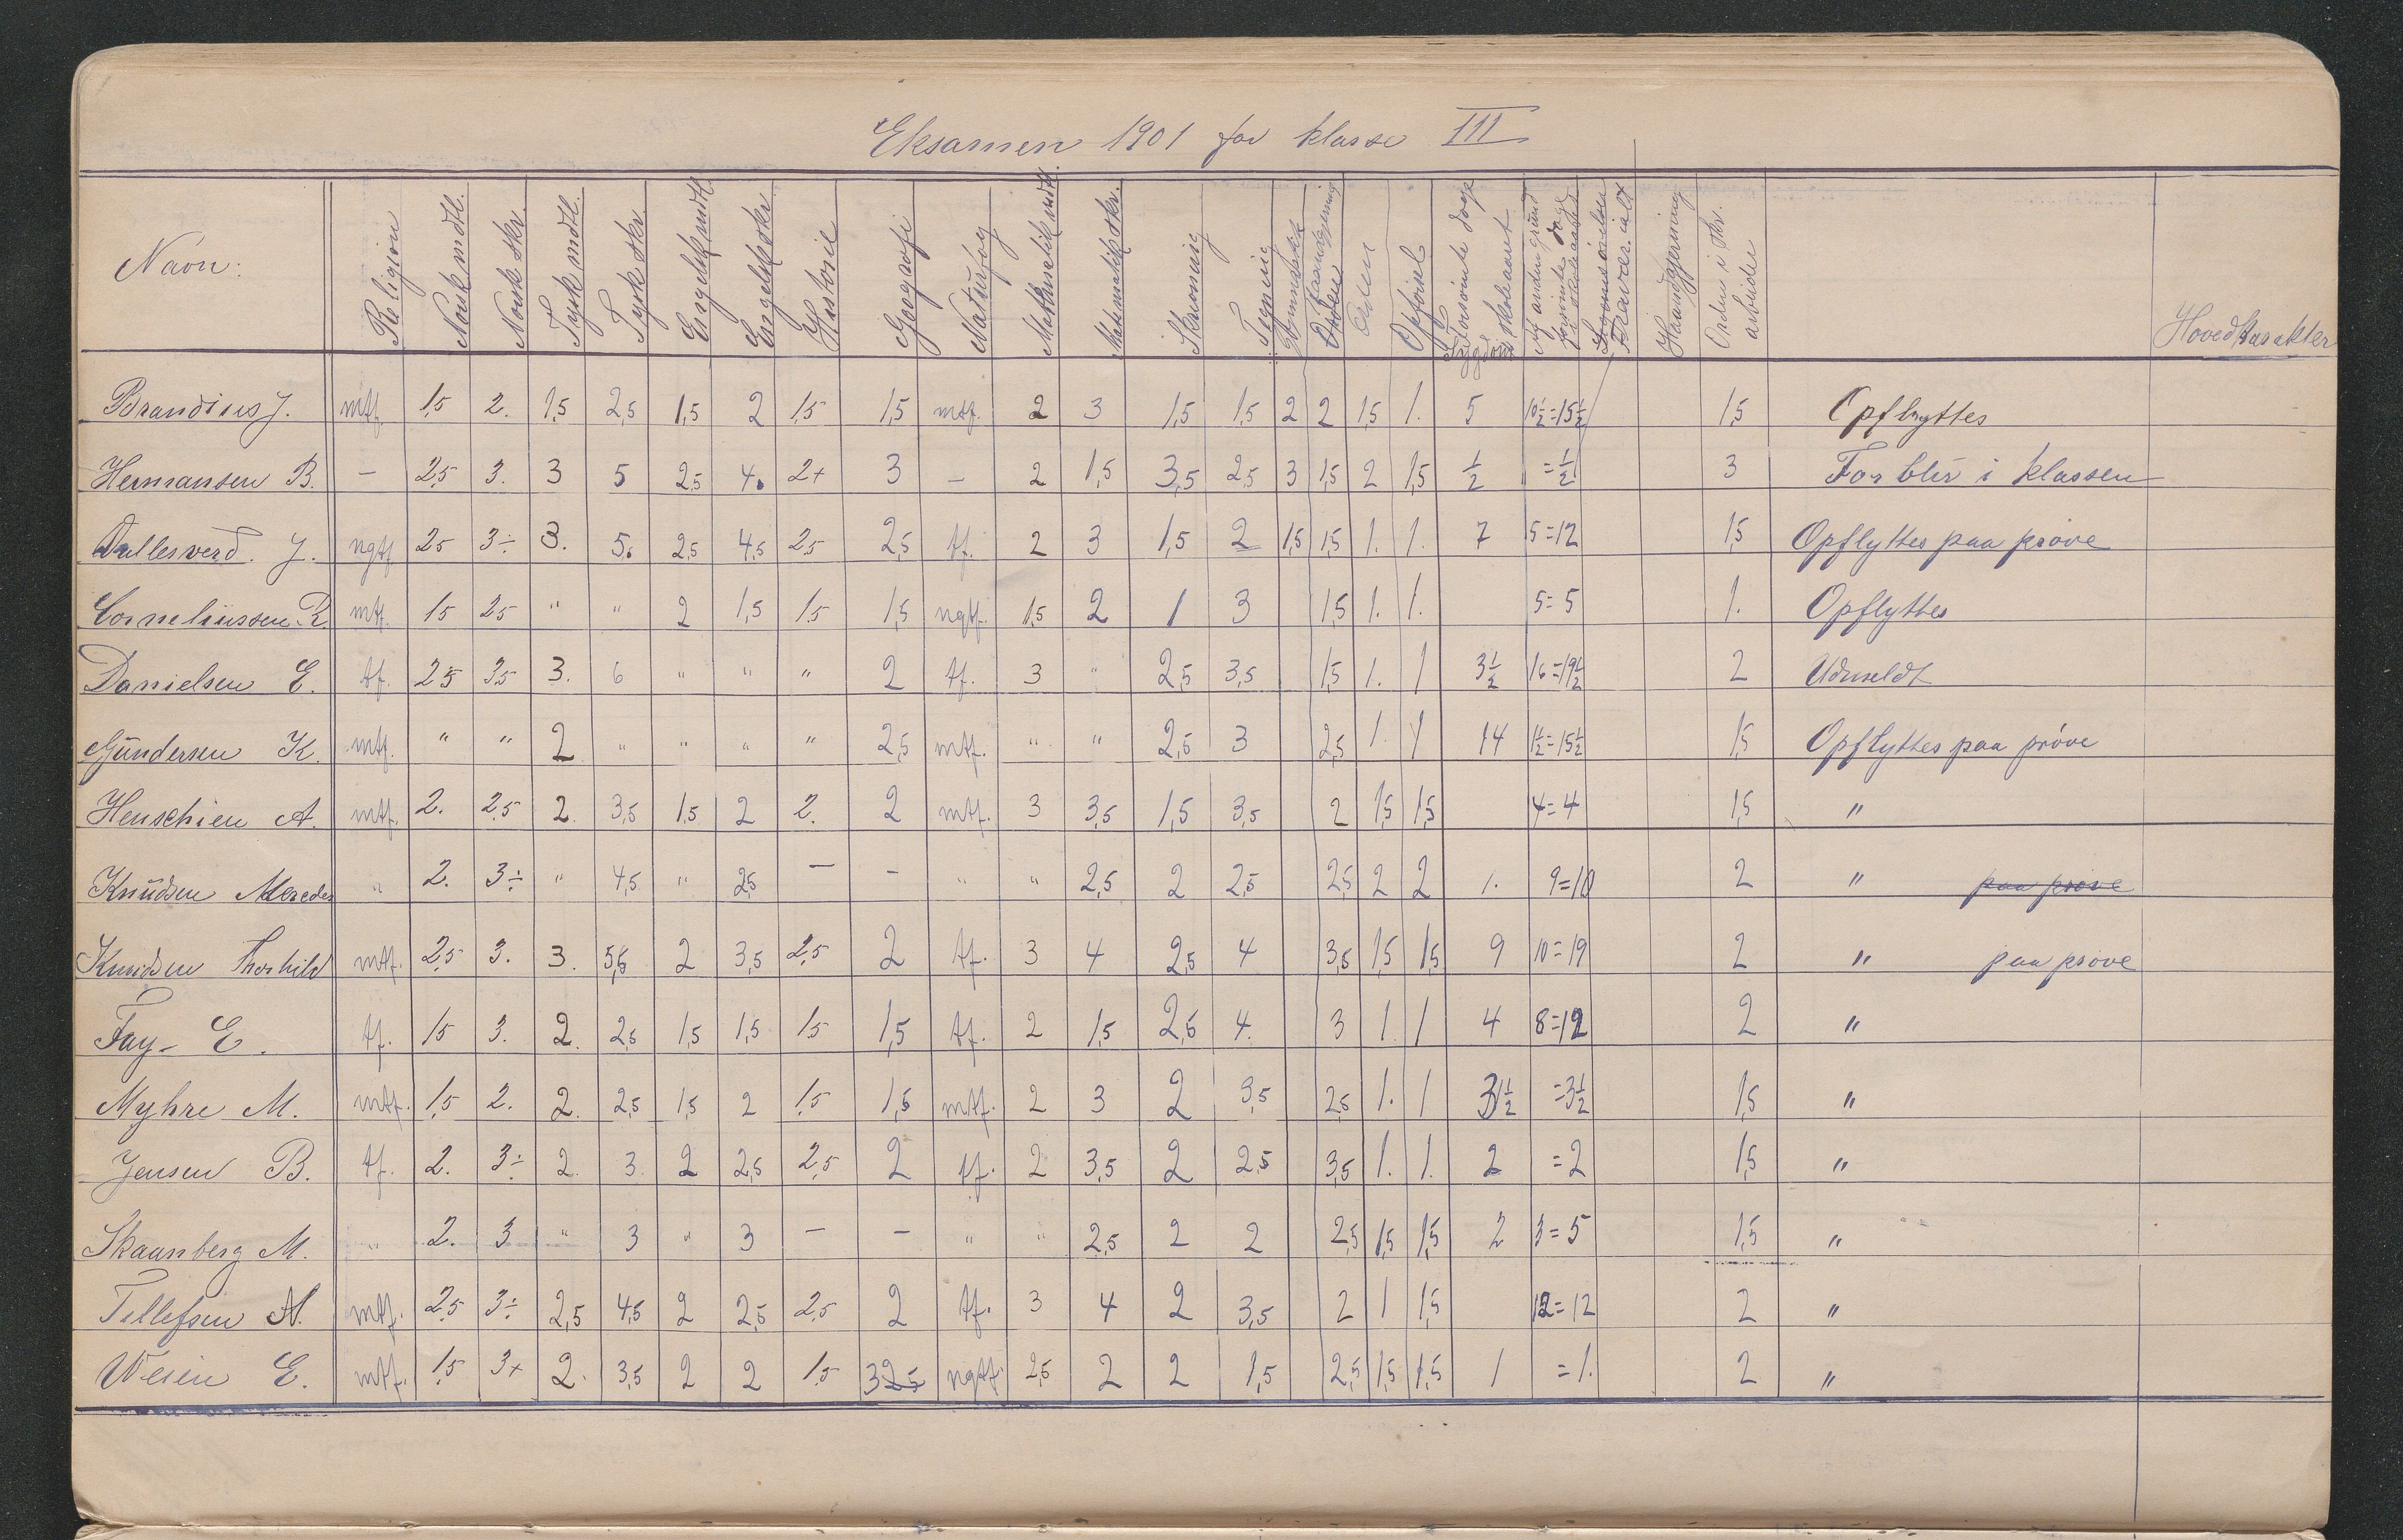 Eksamen 1901 for klasse III
Navn: Religion Norsk mdtl. Norsk skr. Tysk mdtl. Tysk skr. Engelsk mdtl. Engelsk skr. Historie Geografi Naturfag Mathematik mdtl. Matematik skr. Skrivning Tegning Gymnastik Haandgjerning Orden Opførsel Haandgjerning Orden i skr. arbeider Hovedkarakter
Brandius J. mtf. 1,5 2. 1,5 2,5 1,5 2 1,5 1,5 mtf. 2 3 1,5 1,5 2 2 1,5 1. 5 10½=15½ 1,5 Opflyttes
Hermansen B. - 2,5 3. 3 5 2,5 4. 2+ 3 - 2 1,5 3,5 2,5 3 1,5 2 1,5 ½ =½ 3 Forblir i klassen
J. ngtf 2,5 3÷ 3. 5. 2,5 4,5 2,5 2,5 tf. 2 3 1,5 2 1,5 1,5 1. 1. 7 5=12 1,5 Opflyttes paa prøve
Corneliussen R. mtf. 1,5 2,5 " " 2 1,5 1,5 1,5 ngtf. 1,5 2 1 3 1,5 1. 1. 5=5 1. Opflyttes
Danielsen E. tf. 2,5 3,5 3. 6 " " " 2 tf. 3 " 2,5 3,5 1,5 1. 1 3½ 16=19½ 2 Udmeldt
Gundersen K. mtf. " " 2 " " " " 2,5 mtf. " " 2,5 3 2,5 1. 1 14 1½=15½ 1,5 Opflyttes paa prøve
Henschien A. mtf. 2. 2,5 2. 3,5 1,5 2 2. 2 mtf. 3 3,5 1,5 3,5 2 1,5 1,5 4=4 1,5 "
Knudsen Mercedes " 2. 3÷ " 4,5 " 2,5 - - " " 2,5 2 2,5 2,5 2 2 1. 9=10 2 " paa prøve
Knudsen Thorhild mtf. 2,5 3. 3. 5,5 2 3,5 2,5 2 tf. 3 4 2,5 4 3,5 1,5 1,5 9 10=19 2 " paa prøve
Fay- E. tf. 1,5 3. 2. 2,5 1,5 1,5 1,5 1,5 tf. 2 1,5 2,5 4. 3 1 1 4 8=12 2 "
Myhre M. mtf. 1,5 2. 2. 2,5 1,5 2 1,5 1,5 mtf. 2 3 2 3,5 2,5 1. 1 3½ =3½ 1,5 "
Jensen B. tf. 2. 3÷ 2. 3. 2 2,5 2,5 2 tf. 2 3,5 2 2,5 3,5 1. 1. 2 =2 1,5 "
Skaanberg M. " 2. 3 " 3 " 3 - - " " 2,5 2 2 2,5 1,5 1,5 2 3=5 1,5 "
Tellefsen A. mtf. 2,5 3÷ 2,5 4,5 2 2,5 2,5 2 tf. 3 4 2 3,5 2 1 1,5 12=12 2 "
Wesin E. mtf. 1,5 3+ 2. 3,5 2 2 1,5 3 2,5 ngtf. 2,5 2 2 1,5 2,5 1,5 1,5 1 =1. 2 "